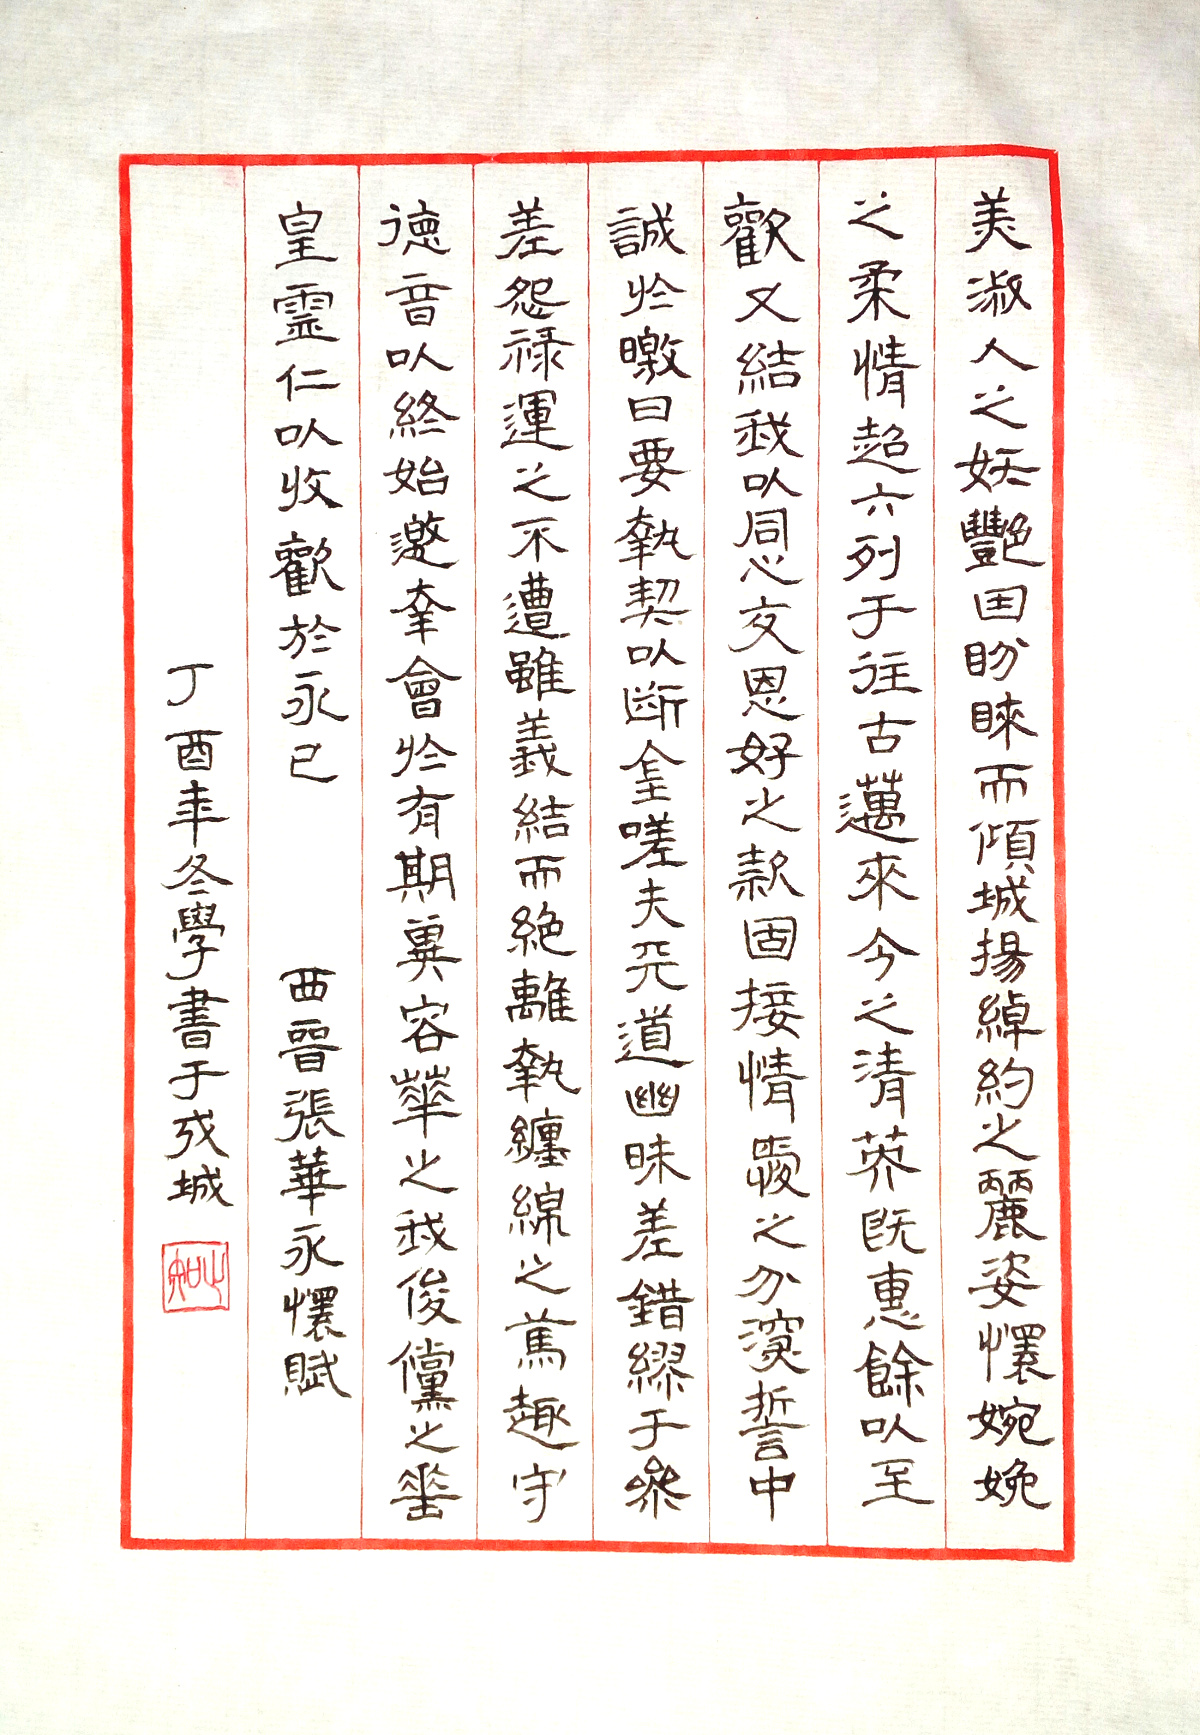 美淑人之妖艷因盼睞而傾城揚綽約之麗姿懷婉娩
之柔情超六列于往古邁來今之清英既惠餘以至
歡又結我以同心交恩好之款固接情愛之分深誓中
誠於曒日要執契以斷金嗟夫天道幽昧差錯繆于參
差怨祿運之不遭雖義結而絶離執纏綿之篤趣守
德音以終始邀幸會於有期冀容華之我俊儻之
皇靈仁以收歡於永已
西晉張華永懷賦
丁酉年冬學書于戎城